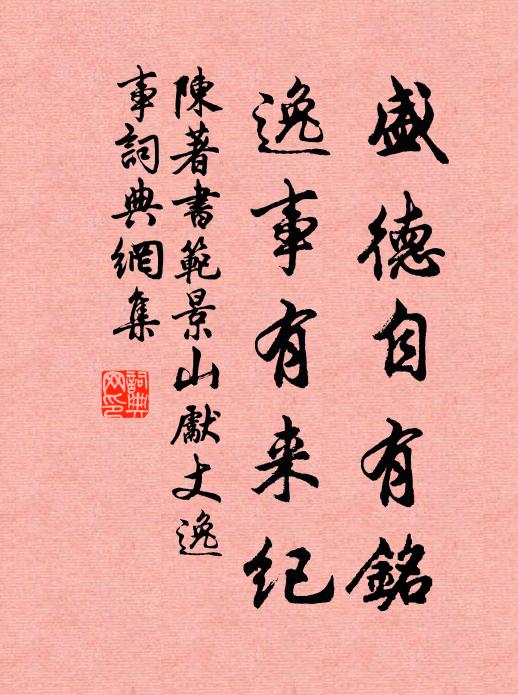 盛德自有銘
逸事有来纪
陳著書範景山獻丈逸
事詞典網集
詞典網印